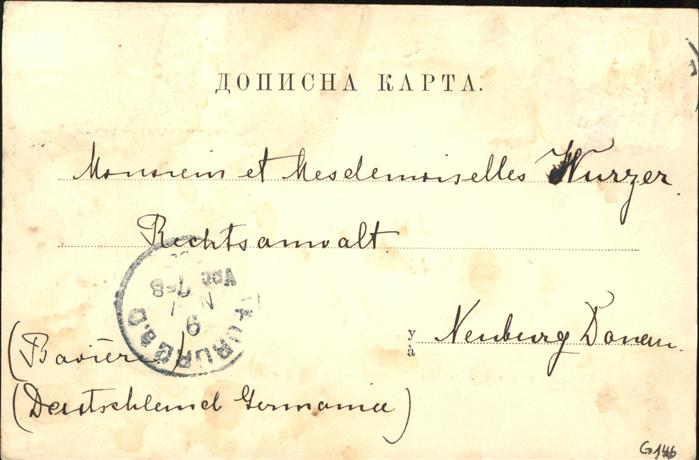 ДОПИСНА КАРТА.
Monsieur et Mesdemoiselles Wurzer
Rechtsanwalt
у
à
Neuburg Donau.
(Bavière)
(Deutschland Germania)
NEUBURG a. D
9
7-8
G146